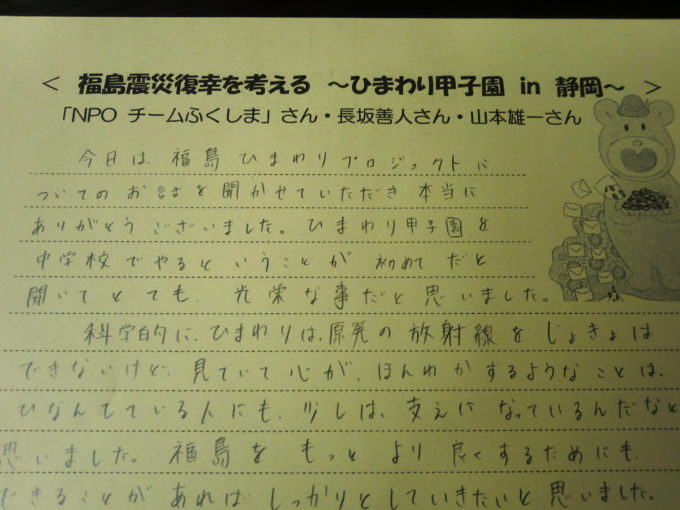 < 福島震災復幸を考える ～ひまわり甲子園 in 静岡～ >
「NPO チームふくしま」さん・長坂善人さん・山本雄一さん
今日は、福島ひまわりプロジェクトに
ついてのお話を聞かせていただき本当に
ありがとうございました。ひまわり甲子園を
中学校でやるということが初めてだと
聞いてとても、光栄な事だと思いました。
科学的に、ひまわりは、原発の放射線をじょきょは
できないけど、見ていて心が、ほんわかするようなことは、
ひなんしている人にも、少しは、支えになっているんだなと
思いました。福島をもっとより良くするためにも、
できることがあればしっかりとしていきたいと思いました。